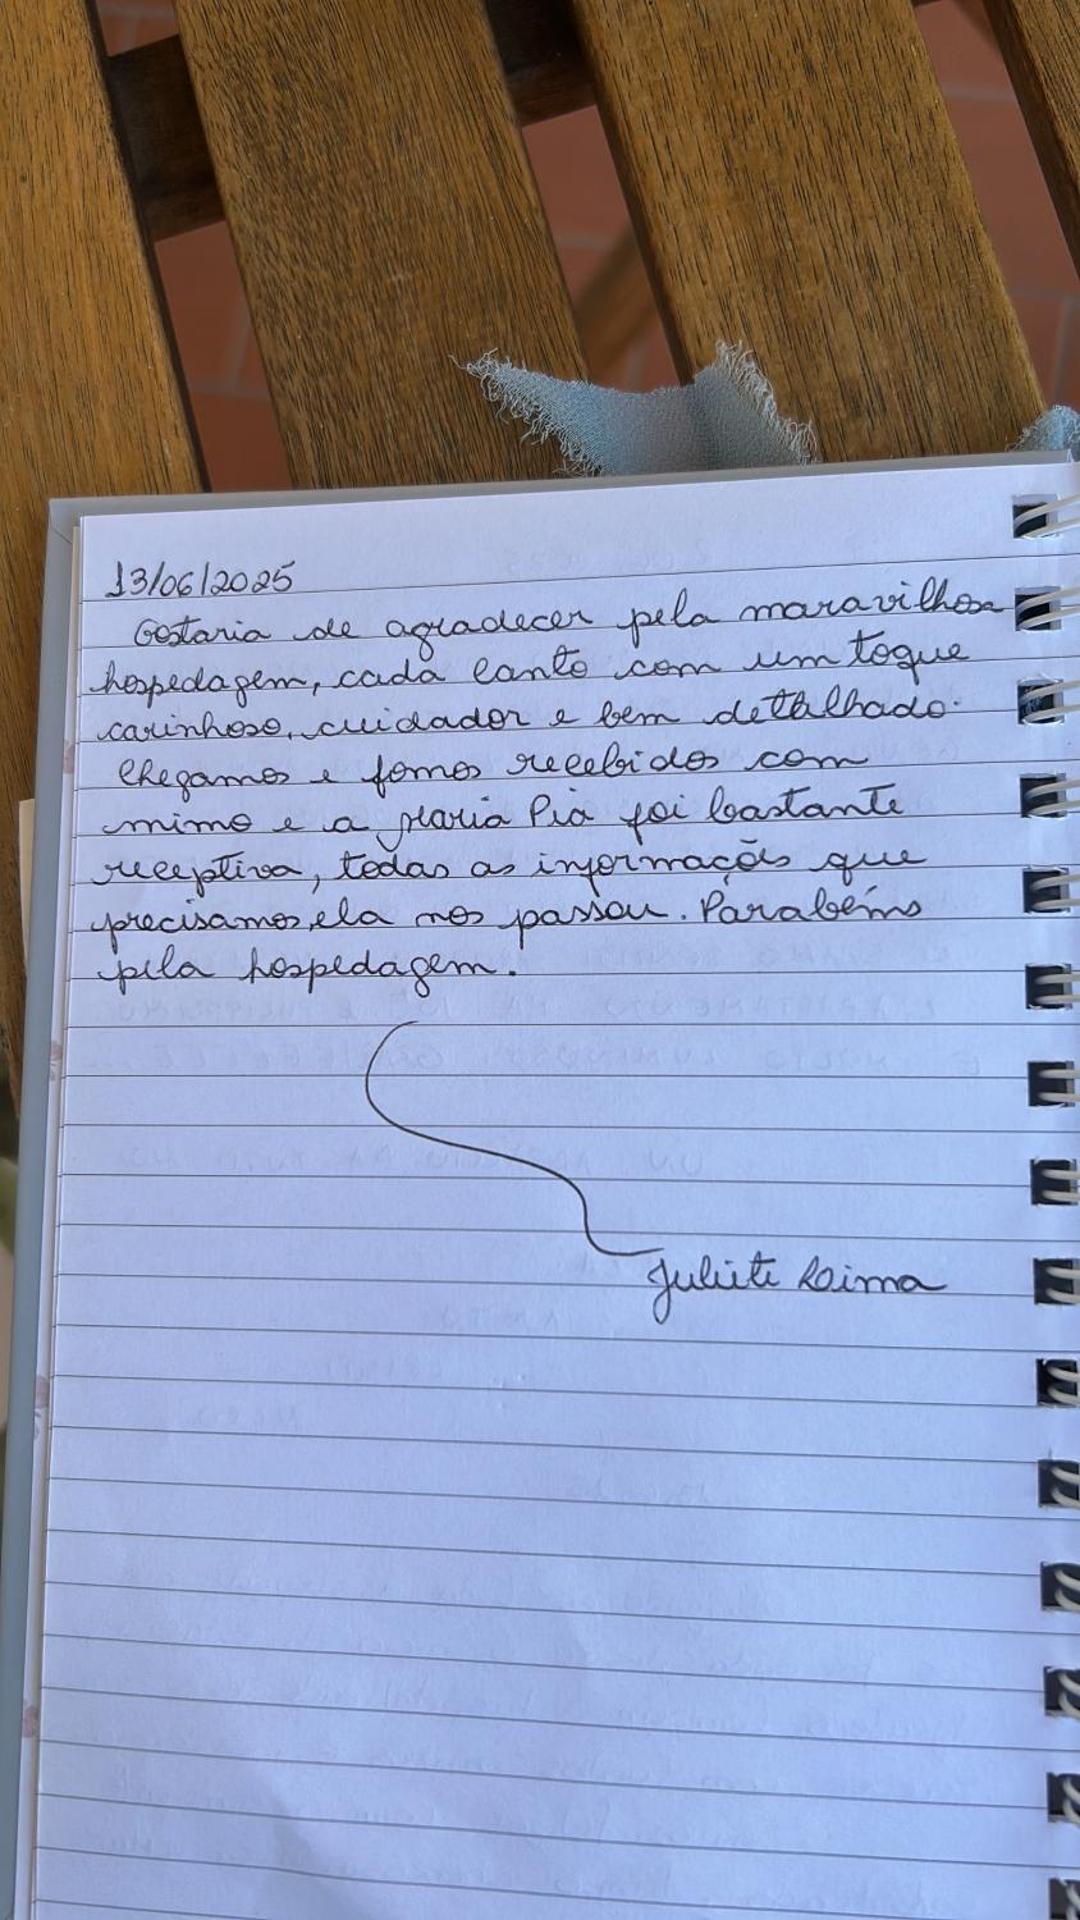 13/06/2025
Gostaria de agradecer pela maravilhosa
hospedagem, cada canto com um toque
carinhoso, cuidador e bem detalhado.
Chegamos e fomos recebidos com
mimo e a Maria Pia foi bastante
receptiva, todas as informações que
precisamos, ela nos passou. Parabéns
pela hospedagem.
Juliete Lima